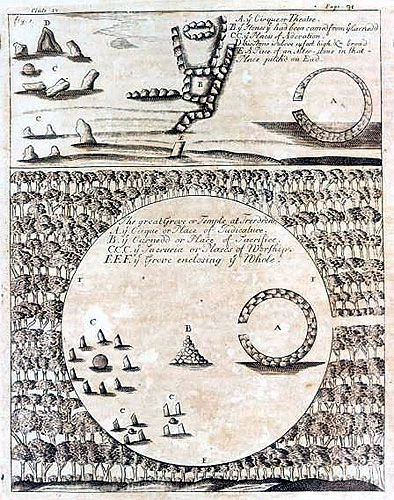 Plate
Page.
fig. 1.
A. ẏ Cirque or Theatre.
B. ẏ Stones has been carried from ẏ Carnedd
C.C. ẏ Places of Adoration.
D. this Stone is above foot high & broad
E. A Piece of an Altar-stone in that
Place pitched on End.
D
C
B
A
C
The great Grove or Temple at
A. ẏ Cirque or Place of Judicature.
B. ẏ Carnedd or Place of Sacrifice.
C.C.C. ẏ Sacraria or Places of Worship.
F.F.F. ẏ Grove enclosing ẏ Whole.
F
F
C
B
A
C
C
F